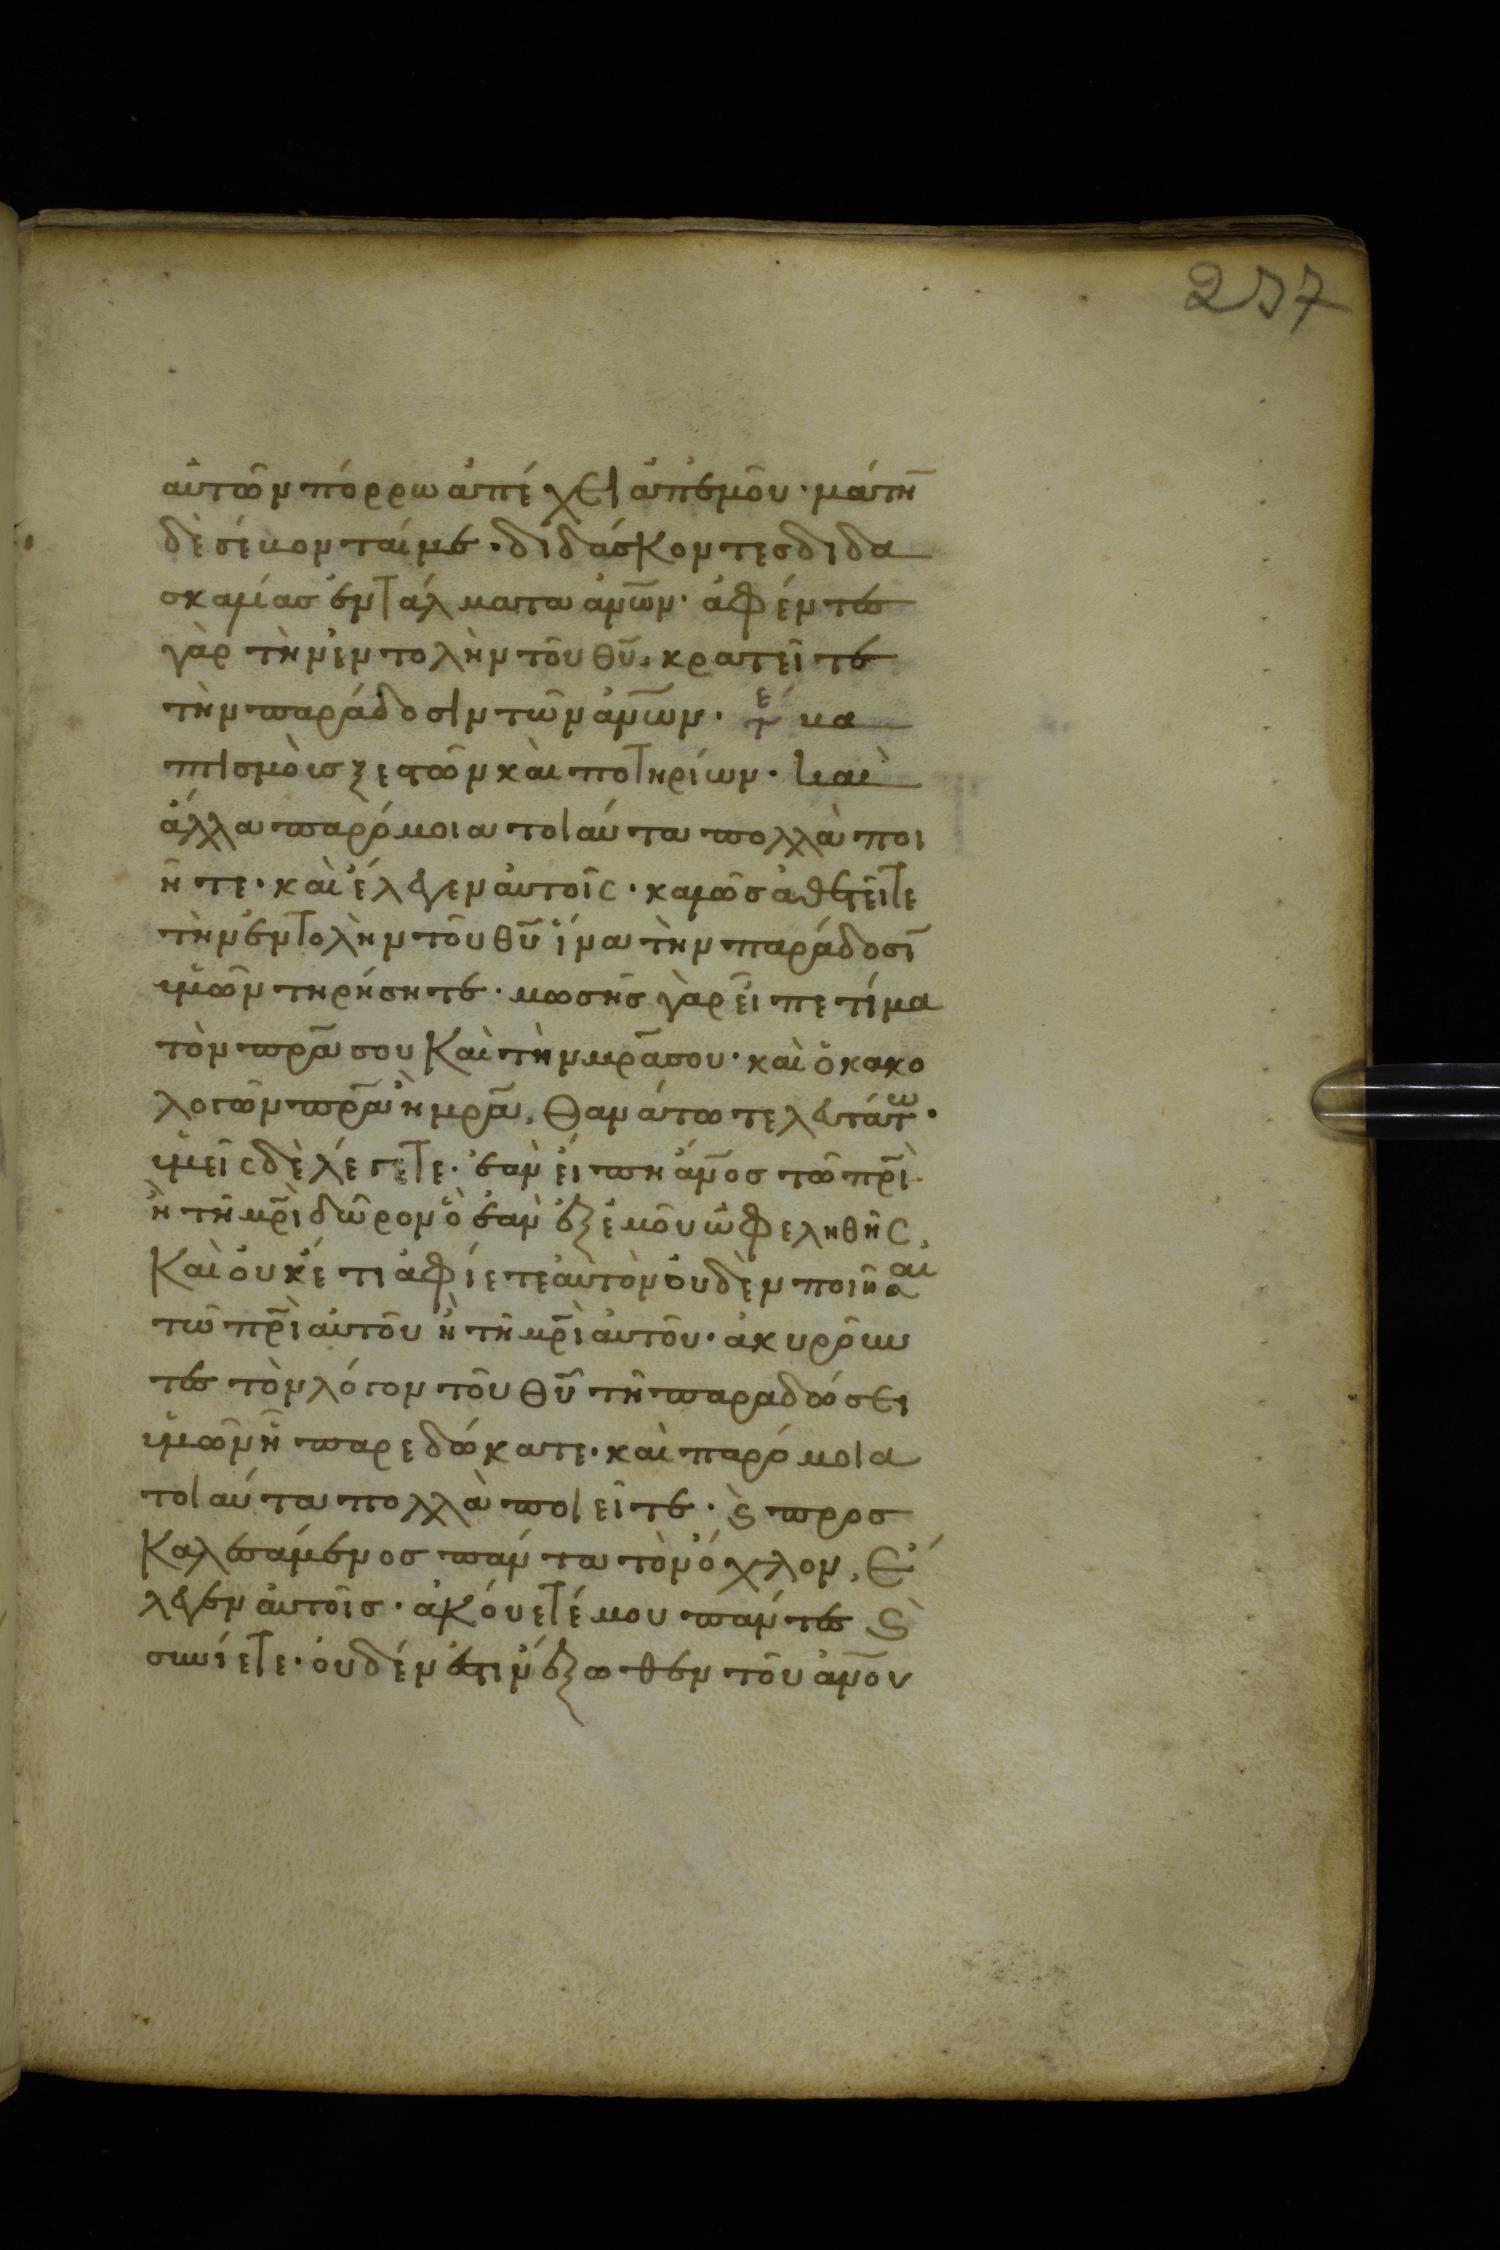 αὐτῶν πόρρω ἀπέχει ἀπεμοῦ· μάτη̅
δὲ σέβονταί με· διδάσκοντες διδα
σκαλίας ἐντάλματα ἀν̅ων· ἀφέντες
γὰρ τὴν ἐντολὴν τοῦ θυ̅, κρατεῖτε
τὴν παράδοσιν τῶν ἀν̅ων· βα
πτισμοὺς ξεστῶν καὶ ποτηρίων· καὶ
ἄλλα παρόμοια τοιαῦτα πολλὰ ποι
ῆτε· καὶ ἔλεγεν αὐτοῖς· καλῶς ἀθετεῖτε
τὴν ἐντολὴν τοῦ θυ̅ ἵνα τὴν παράδοσι̅
ὑμῶν τηρήσητε· μωσῆς γὰρ εἶπε τίμα
τὸν πρ̅α σου καὶ τὴν μρ̅α σου· καὶ ὁ κακο
λογῶν πρ̅α ἢ μρ̅α, θανάτω τελευτάτω·
ὑμεῖς δὲ λέγετε· ἐὰν εἴπη ἄν̅ος τῶ πρ̅ι
ἢ τῆ μρ̅ι δῶρον ὃ ἐὰν ἐξ ἐμοῦ ὠφεληθῆς,
καὶ οὐκέτι ἀφίετε αὐτὸν οὐδὲν ποιῆσαι
τῶ πρ̅ι αὐτοῦ ἢ τῆ μρ̅ι αὐτοῦ· ἀκυροῦν
τες τὸν λόγον τοῦ θυ̅ τῆ παραδώσει
ὑμῶν ἧ παρεδώκατε· καὶ παρόμοια
τοιαῦτα πολλὰ ποιεῖτε· ϛ̀ προσ
καλεσάμενος πάντα τὸν ὄχλον, ἔ
λεγεν αὐτοῖς· ἀκούετέ μου πάντες ϛ̀
συνίετε· οὐδέν ἐστιν ἔξωθεν τοῦ ἀν̅ου
237